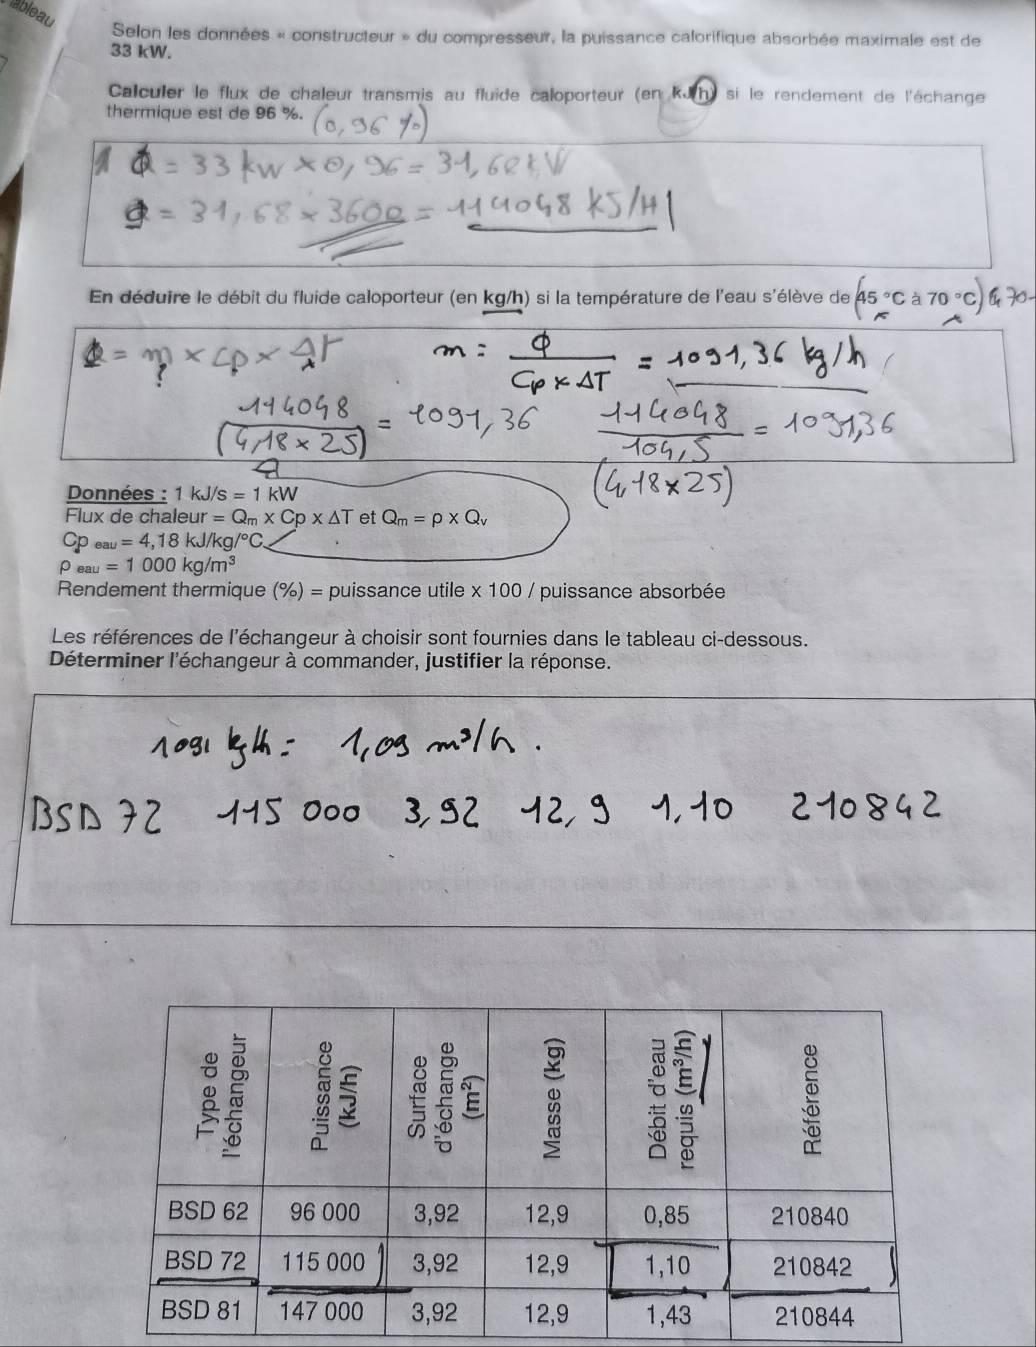 tableau
Selon les données « constructeur » du compresseur, la puissance calorifique absorbée maximale est de
33 kW.
Calculer le flux de chaleur transmis au fluide caloporteur (en kJ/h) si le rendement de l'échange
thermique est de 96 %. (0,96 %)
Φ = 33 kW × 0,96 = 31,68 kW
Φ = 31,68 × 3600 = 114048 KJ/H
En déduire le débit du fluide caloporteur (en kg/h) si la température de l'eau s'élève de (45 °C à 70 °C)
Φ = m × Cp × ΔT m = Φ / Cp × ΔT = 1091,36 kg/h
?
114048 / (4,18 × 25) = 1091,36 114048 / 104,5 = 1091,36
(4,18 × 25)
Données : 1 kJ/s = 1 kW
Flux de chaleur = Qm × Cp × ΔT et Qm = ρ × Qv
Cp eau = 4,18 kJ/kg/°C
ρ eau = 1 000 kg/m³
Rendement thermique (%) = puissance utile x 100 / puissance absorbée
Les références de l'échangeur à choisir sont fournies dans le tableau ci-dessous.
Déterminer l'échangeur à commander, justifier la réponse.
1091 kg/h = 1,09 m³/h.
BSD 72 115 000 3,92 12,9 1,10 210842
Type de l'échangeur Puissance (kJ/h) Surface d'échange (m²) Masse (kg) Débit d'eau requis (m³/h) Référence
BSD 62 96 000 3,92 12,9 0,85 210840
BSD 72 115 000 3,92 12,9 1,10 210842
BSD 81 147 000 3,92 12,9 1,43 210844